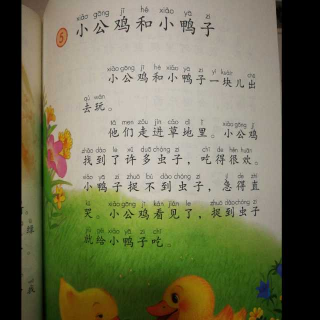 xiǎo gōng jī hé xiǎo yā zi
5 小公鸡和小鸭子
xiǎo gōng jī hé xiǎo yā zi yí kuàir chū
小公鸡和小鸭子一块儿出
qù wán
去玩。
tā men zǒu jìn cǎo dì lǐ xiǎo gōng jī
他们走进草地里。小公鸡
zhǎo dào le xǔ duō chóng zi chī de hěn huān
找到了许多虫子，吃得很欢。
xiǎo yā zi zhuō bú dào chóng zi jí de zhí
小鸭子捉不到虫子，急得直
kū xiǎo gōng jī kàn jiàn le zhuō dào chóng zi
哭。小公鸡看见了，捉到虫子
jiù gěi xiǎo yā zi chī
就给小鸭子吃。